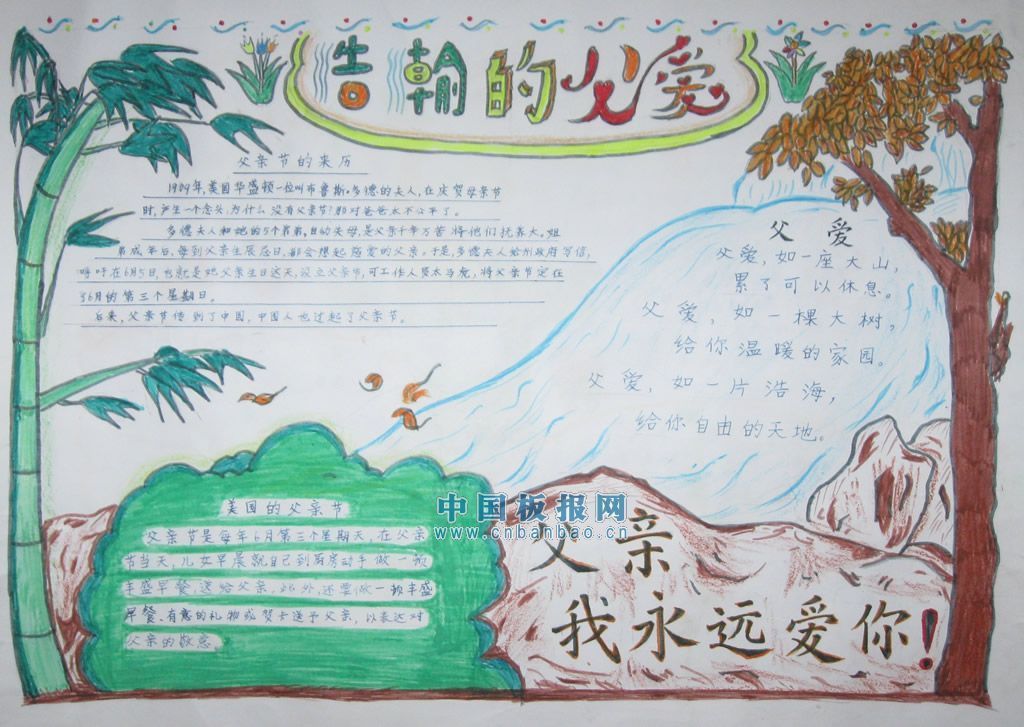 浩瀚的父爱
父亲节的来历
1909年,美国华盛顿一位叫布鲁斯·多德的夫人,在庆贺母亲节
时,产生一个念头,为什么没有父亲节?那对爸爸太不公平了。
多德夫人和她的5个弟弟,自幼失母,是父亲千辛万苦将他们抚养大。姐
弟成年后,每到父亲生辰忌日,都会想起慈爱的父亲。于是,多德夫人给州政府写信,
呼吁在6月5日,也就是她父亲生日这天,设立父亲节,可工作人员太马虎,将父亲节定在
了6月的第三个星期日。
后来,父亲节传到了中国,中国人也过起了父亲节。
父爱
父爱,如一座大山,
累了可以休息。
父爱,如一棵大树,
给你温暖的家园。
父爱,如一片浩海,
给你自由的天地。
美国的父亲节
父亲节是每年6月第三个星期天,在父亲
节当天,儿女早晨就自己到厨房动手做一顿
丰盛早餐送给父亲 此外,还要做一顿丰盛
早餐、有意的礼物或贺卡送予父亲,以表达对
父亲的敬意。
中国板报网
www.cnbanbao.cn
父亲
我永远爱你!